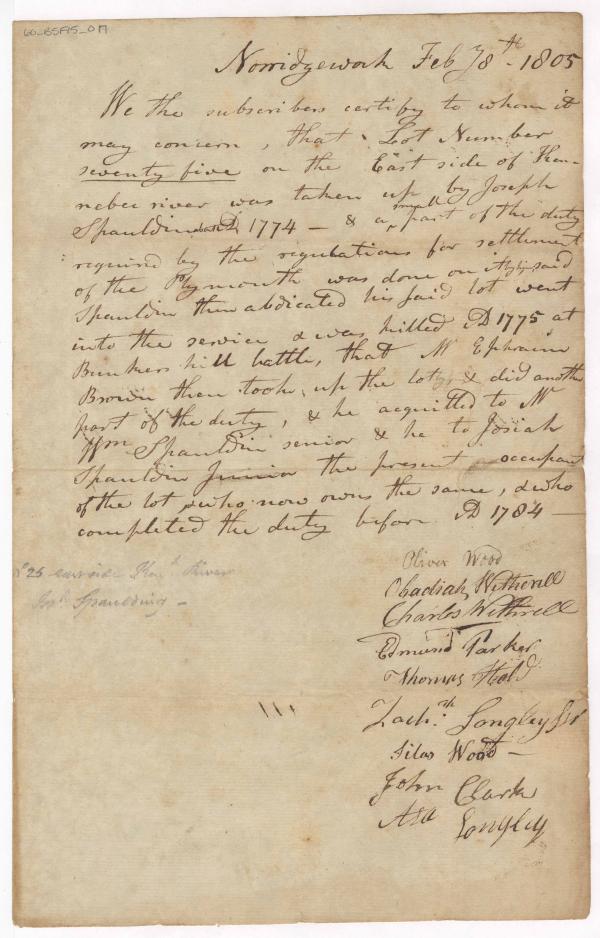 60-BSF75-019
Norridgework Feb 78th - 1805
We the subscribers certify to whom it
may concern, that Lot Number
seventy five on the East side of Ken-
nebec river was taken up by Joseph
Spauldin about AD 1774 - & a small part of the duty
required by the regulations for settlement
of the Plymouth was done on it by said
Spauldin then abdicated his said lot went
into the service & was killed AD 1775 at
Bunkers hill battle, that Mr Ephraim
Brown then took up the lot & did another
part of the duty, & he acquitted to Mr
Wm Spauldin senior & he to Josiah
Spauldin Junior the present occupant
of the lot, & who now owns the same, & who
completed the duty before AD 1784 -
Oliver Wood
Obadiah Witherill
Charles Withrell
Edmund Parker
Thomas
Zachrh Longley Jr
Silas Wood -
John Clark
Asa Longley
25 east side River
Spaulding -